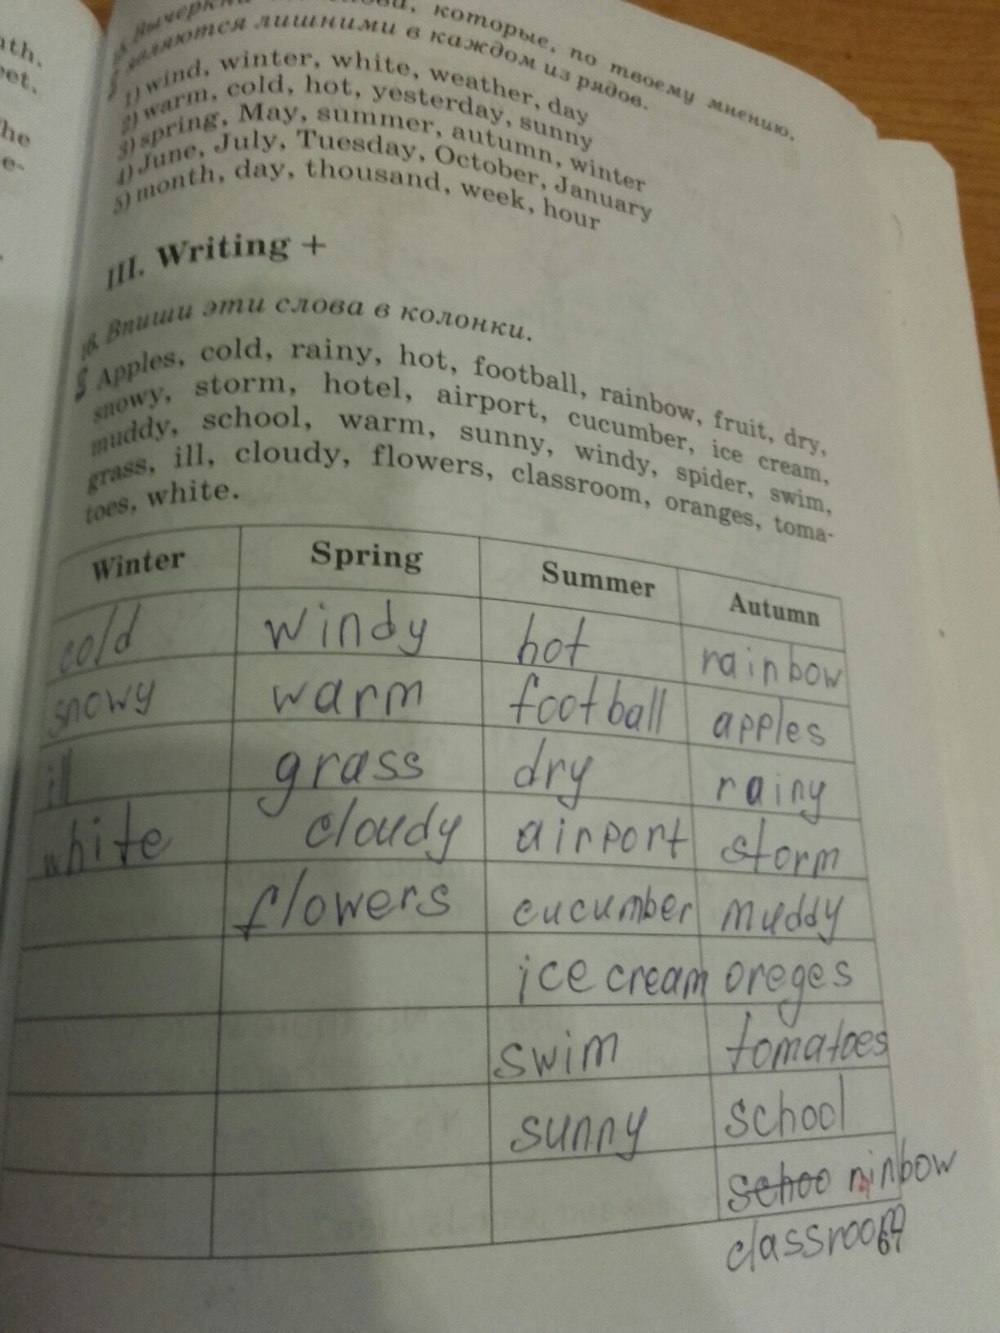 ath.
eet.
he
e-
Вычеркни слова, которые, по твоему мнению,
являются лишними в каждом из рядов.
1) wind, winter, white, weather, day
2) warm, cold, hot, yesterday, sunny
3) spring, May, summer, autumn, winter
4) June, July, Tuesday, October, January
5) month, day, thousand, week, hour
III. Writing +
16. Впиши эти слова в колонки.
Apples, cold, rainy, hot, football, rainbow, fruit, dry,
snowy, storm, hotel, airport, cucumber, ice cream,
muddy, school, warm, sunny, windy, spider, swim,
grass, ill, cloudy, flowers, classroom, oranges, toma-
toes, white.
Winter Spring Summer Autumn
cold windy hot rainbow
snowy warm football apples
ill grass dry rainy
white cloudy airport storm
flowers cucumber muddy
ice cream oreges
swim tomatoes
sunny school
schoo rainbow
classroom
67